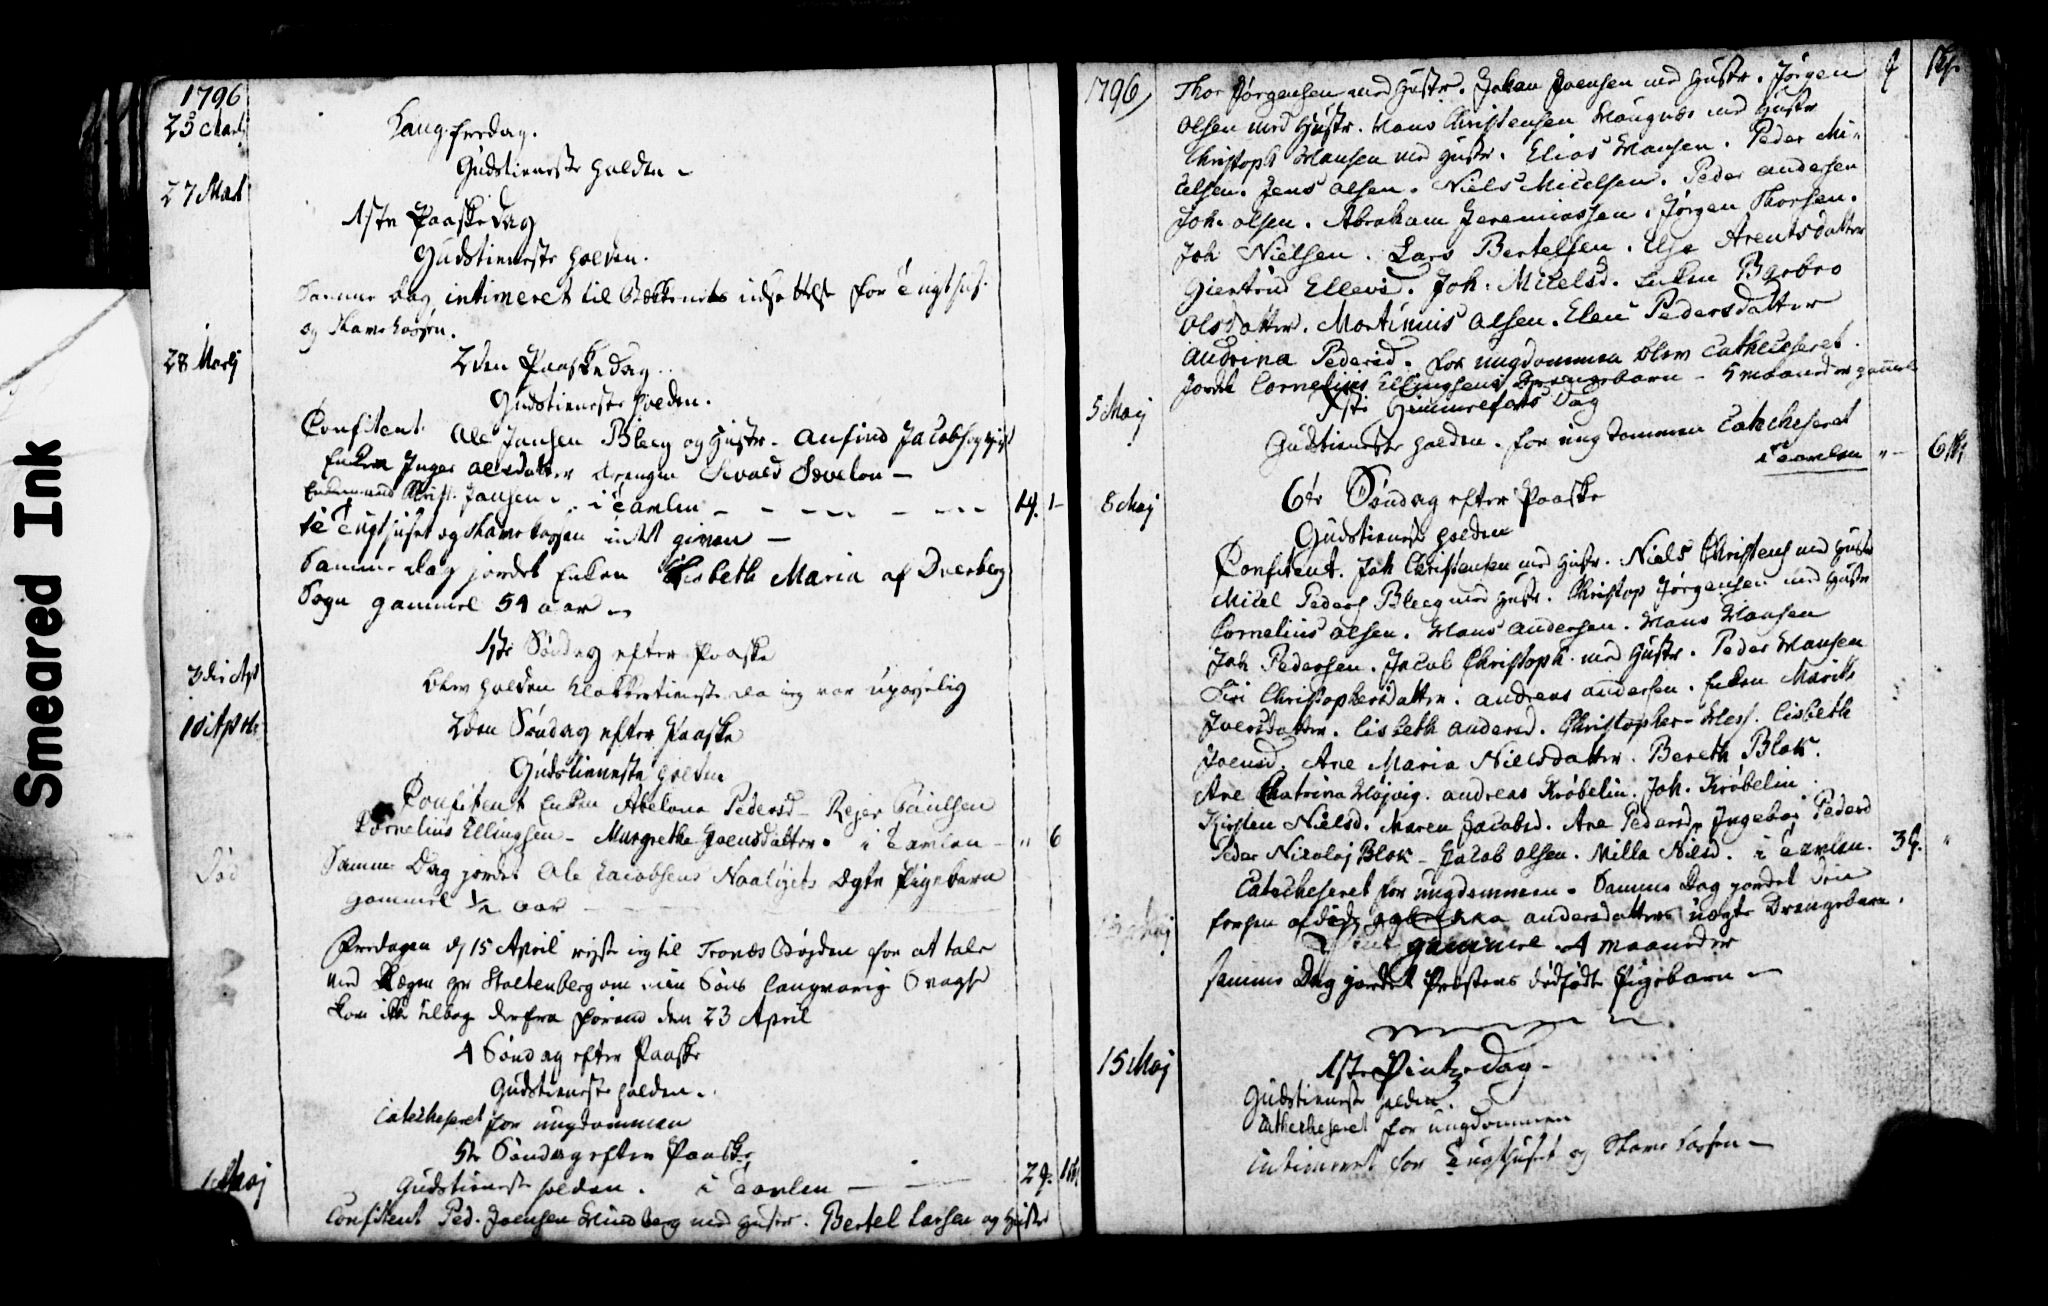 Smeared Ink
1796
25 Martj
Lang-fredag.
Gudstieneste holden
27 Mart
1ste Paaske Dag
Gudstieneste holden.
Samme Dag intimeret til udsættelse for Tugthus.
og
28 Martj
2den Paaske Dag.
Gudstieneste holden.
Confitent. Ole Jansen Bleeg og Hustr. Anfind Jacobs og
Enken Inger Olsdatter drengen Sivald
Enkemand Christ. Jansen. i Tavlen 14. 1
te Tugthuset og intet given
Samme Dag jordet Enken Lisbeth Maria af Dverberg
Sogn gammel 54 aar
3die Apr
1ste Søndag efter Paaske
blev holden Klokkertieneste da ieg var upasselig
10 Apr
2den Søndag efter Paaske
Gudstieneste holden
Confitent Enken Abelona Pedersd. Rejer Paulsen
Cornelius Ellingsen Margrethe Joensdatter. i Tavlen " 6
Død
Samme Dag jordet Ole Jacobsens ægte Pigebarn
gammel 1/2 aar
Fredagen d 15 April rejste ieg til for at tale
med Hr Stoltenberg om min Søns langvarig
kom ikke tilbage derfra førend den 23 April
4 Søndag efter Paaske
Gudstieneste holden.
Catecheseret for ungdommen
5te Søndag efter Paaske
Maj
Gudstieneste holden. i Tavlen 2
Confitent Ped. Joensen med Hustr. Bertel Larsen og Hustr
1796
Thor Jørgensen med Hustr. Johan Joensen med Hustr. Jørgen
Olsen med Hustr. Hans Christensen med Hustr
Christoph Hansen med Hustr. Elias Hansen. Peder Mi-
celsen. Jens Olsen. Niels Micelsen. Peder Andersen
Joh. Olsen. Abraham Jeremiassen. Jørgen Thorsen.
Joh Nielsen. Lars Bertelsen. Else Arentsdatter
Giertrud Ellevsd. Joh. Micelsd. Enken Barbro
Olsdatter. Mortinus Olsen. Elen Pedersdatter
Audrina Pedersd. for ungdommen blev Catecheseret.
jordet Cornelius Ellingsens Drengebarn 5 maaneder gammel
5 Maj
Christi Himmelfarts Dag
Gudstieneste holden. for ungdommen Catecheseret
i Tavlen " 6
8 Maj
6te Søndag efter Paaske
Gudstieneste holden
Confitent. Joh Christensen med Hustr. Niels Christens med Hustr
Micel Peders Bleeg med Hustr. Christop Jørgensen med Hustr
Cornelius Olsen. Hans Andersen. Hans Hansen
Joh Pedersen. Jacob Christoph. med Hustr. Peder Hansen
Siri Christophersdatter. Andreas Andersen. Enken Marith
Joensdatter. Lisbeth Andersd. Christopher Lisbeth
Joensd. Ane Maria Nielsdatter. Bereth Blok.
Ane Chatrina Højvig. Andreas Krøbelin. Joh. Krøbelin
Kirsten Nielsd. Maren Jacobsd. Ane Pedersd. Ingebor Pedersd
Peder Nicolaj Blok. Jacob Olsen. Milla Nilsd. i Tavlen. 3
Catecheseret for ungdommen. Samme Dag jordet den
Andersdatters uægte Drengebarn.
gammel 4 maaneder
Samme Dag jordet Præstens dødfødte Pigebarn
15 Maj
1ste Pintzedag
Gudstieneste holden.
Catecheseret for ungdommen
intimeret for Tugthuset og